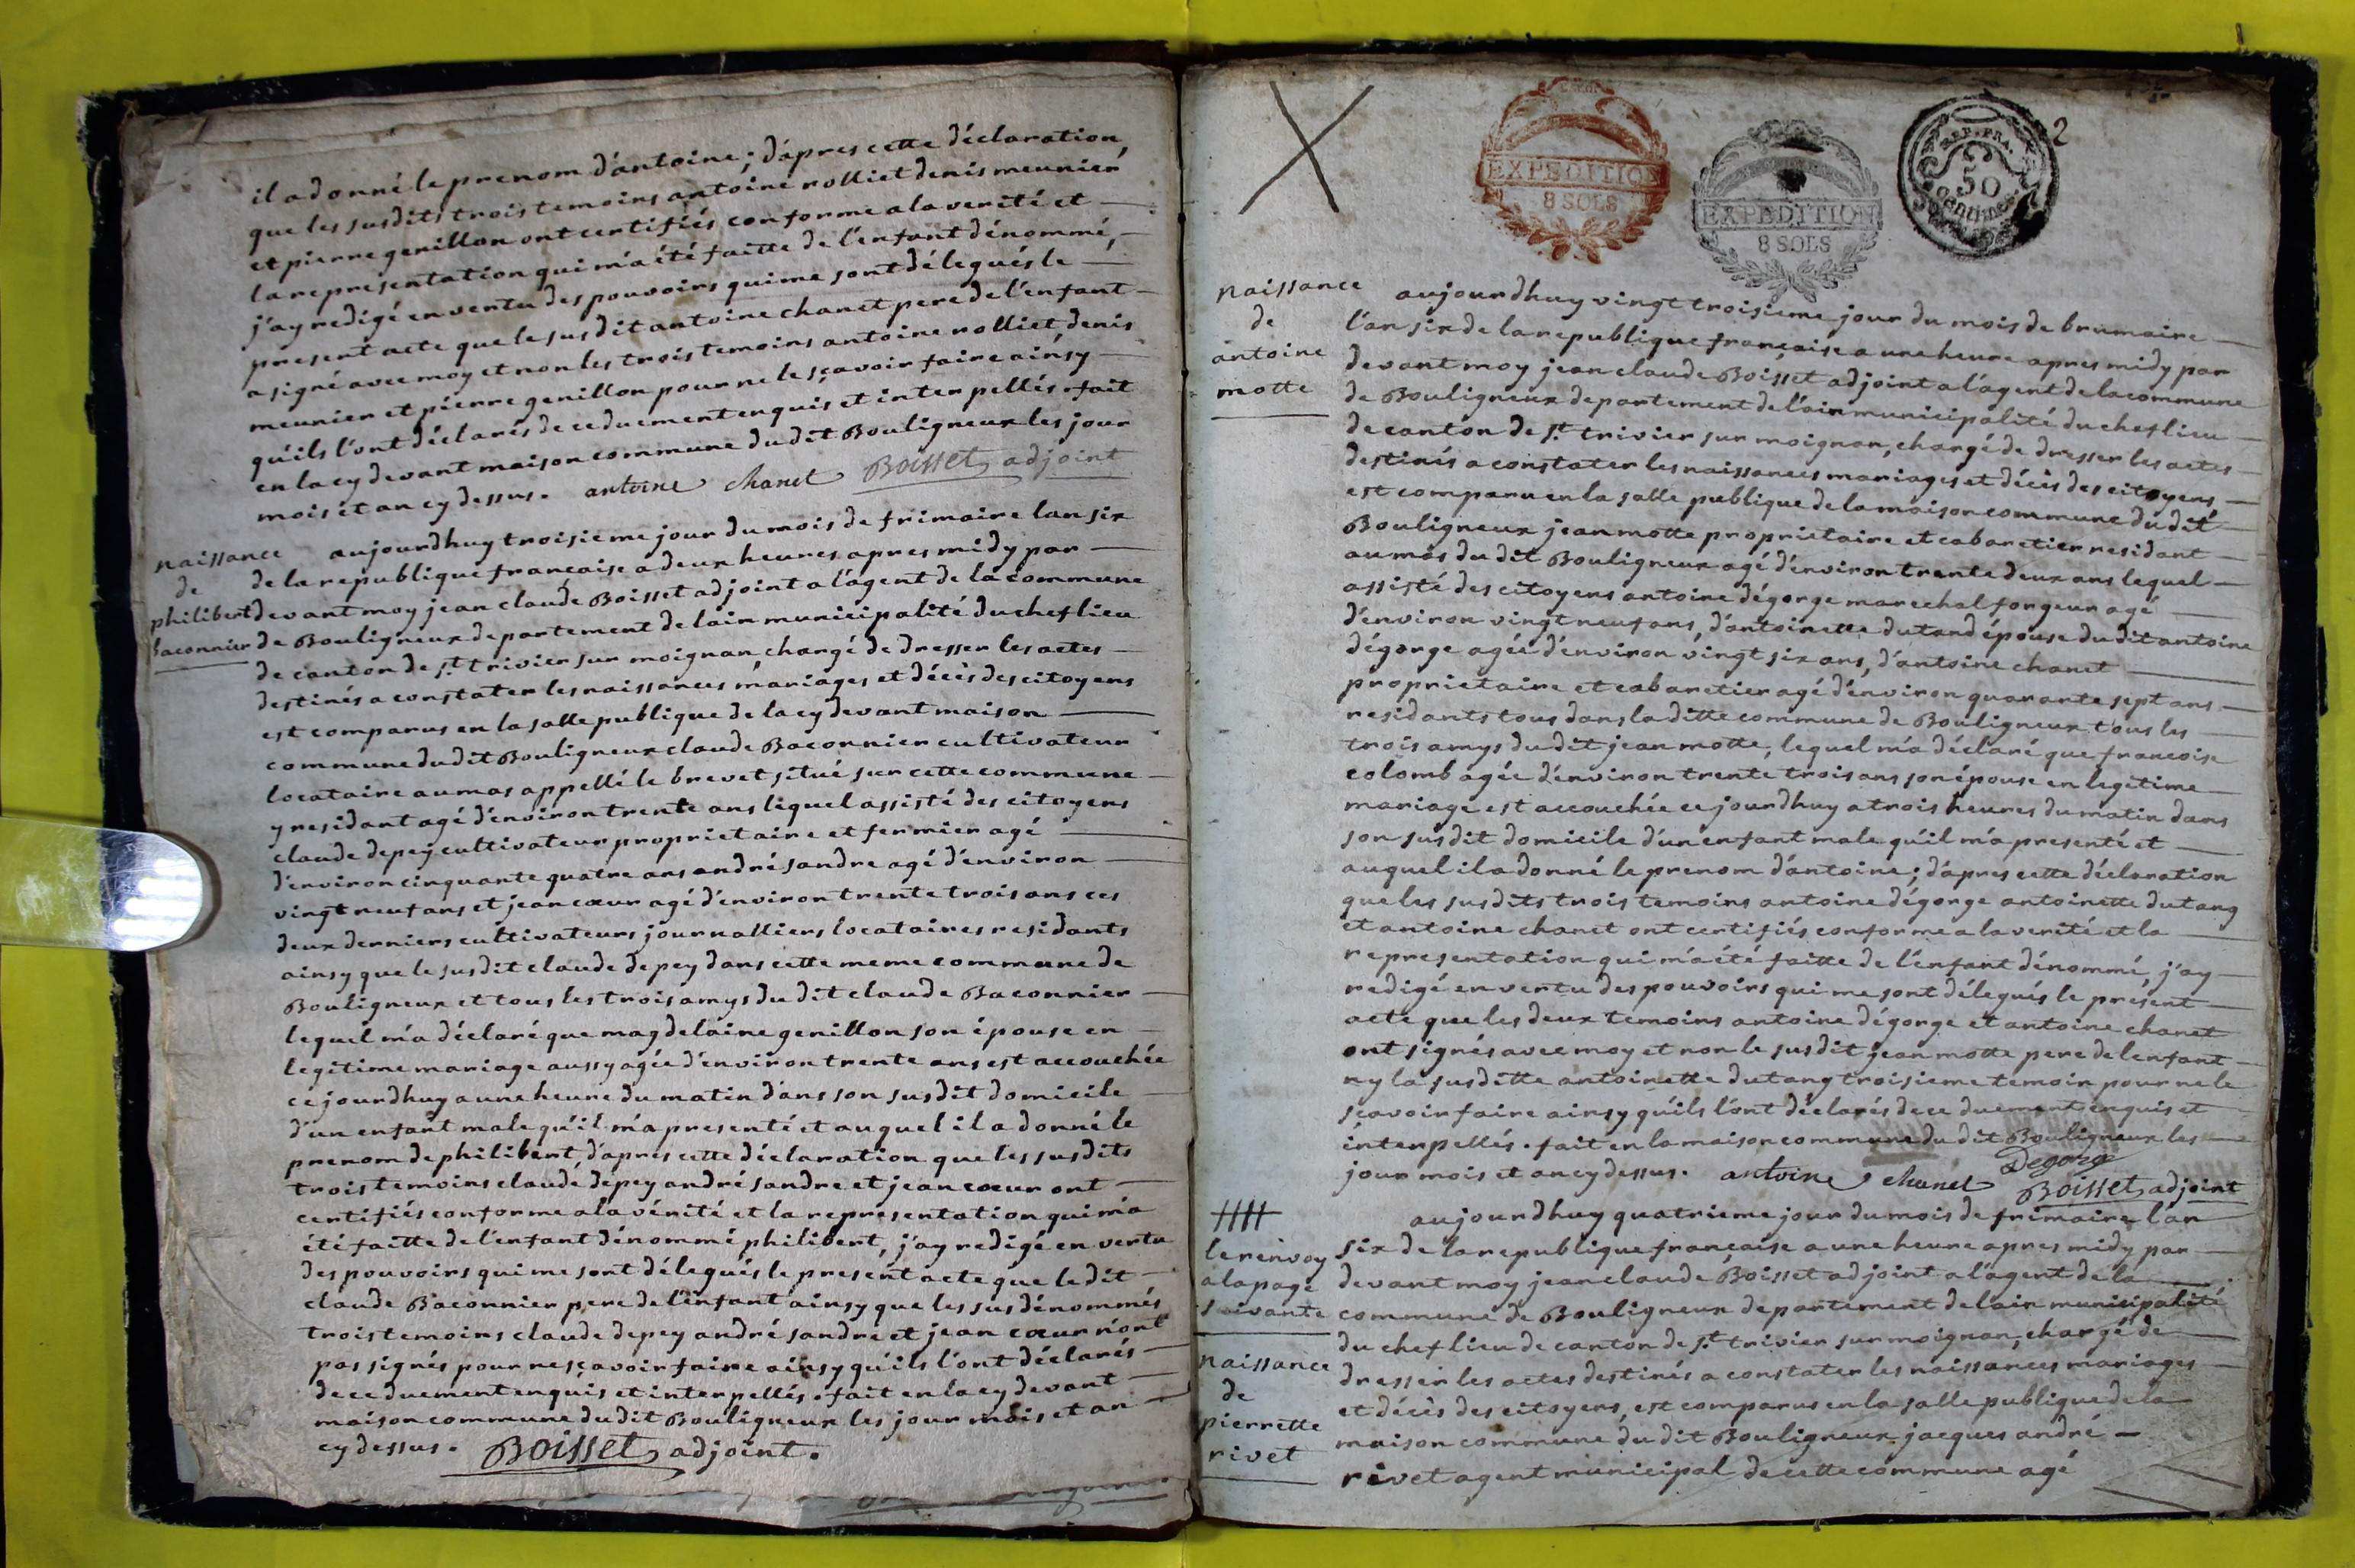 il a donné le prenom d'antoine; d'apres cette déclaration,
que les susdits trois temoins antoine rolliet denis meunier
et pierre genillon ont certifiés conforme a la verité et
la representation qui m'a été faitte de l'enfant dénommé,
j'ay redigé en vertu des pouvoirs qui me sont délegués le
present acte que le susdit antoine chanet pere de l'enfant
a signé avec moy et non les trois temoins antoine rolliet, denis
meunier et pierre genillon pour ne le sçavoir faire ainsy
qu'ils l'ont déclarés de ce duement enquis et interpellés. fait
en la cy devant maison commune du dit Bouligneux les jour
mois et an cy dessus. antoine chanet Boisset adjoint
naissance
de
philibert
Baconnier
aujourdhuy troisieme jour du mois de frimaire lan six
de la republique francaise a deux heures apres midy par
devant moy jean claude Boisset adjoint a l'agent de la commune
de Bouligneux departement de lain municipalité du chef lieu
de canton de st trivier sur moignan, chargé de dresser les actes
destinés a constater les naissances mariages et décès des citoyens
est comparus en la salle publique de la cy devant maison
commune du dit Bouligneux claude Baconnier cultivateur
locataire au mas appellé le brevet situé sur cette commune
y residant agé d'environ trente ans lequel assisté des citoyens
claude depey cultivateur proprietaire et fermier agé
d'environ cinquante quatre ans andré sandre agé d'environ
vingt neuf ans et jean cœur agé d'environ trente trois ans ces
deux derniers cultivateurs journalliers locataires residants
ainsy que le susdit claude depey dans cette meme commune de
Bouligneux et tous les trois amys du dit claude Baconnier
lequel m'a déclaré que magdelaine genillon son épouse en
legitime mariage aussy agée d'environ trente ans est accouchée
ce jourdhuy a une heure du matin dans son susdit domicile
d'un enfant male qu'il m'a presenté et auquel il a donné le
prenom de philibert, d'après cette déclaration que les susdits
trois temoins claude depey andré sandre et jean cœur ont
certifiés conforme a la vérité et la représentation qui m'a
été faitte de l'enfant dénommé philibert, j'ay redigé en vertu
des pouvoirs qui me sont délegués le present acte que le dit
claude Baconnier pere de l'enfant ainsy que les sus dénommés
trois temoins claude depey andré sandre et jean cœur n'ont
pas signés pour ne sçavoir faire ainsy qu'ils l'ont déclarés
de ce duement enquis et interpellés. fait en la cy devant
maison commune du dit Bouligneux les jour mois et an
cy dessus. Boisset adjoint.
2
EXPEDITION
8 SOLS
EXPEDITION
8 SOLS
REP. FRA.
50
Centimes
naissance
de
antoine
motte
aujourdhuy vingt troisieme jour du mois de brumaire
l'an six de la republique française a une heure apres midy par
devant moy jean claude Boisset adjoint a l'agent de la commune
de Bouligneux departement de l'ain municipalité du chef lieu
de canton de st trivier sur moignan, chargé de dresser les actes
destinés a constater les naissances mariages et décès des citoyens,
est comparu en la salle publique de la maison commune du dit
Bouligneux jean motte proprietaire et cabaretier residant
au mas du dit Bouligneux agé d'environ trente deux ans lequel
assisté des citoyens antoine dégorge marechal forgeur agé
d'environ vingt neuf ans, d'antoinette dutand épouse du dit antoine
dégorge agée d'environ vingt six ans, d'antoine chanet
proprietaire et cabaretier agé d'environ quarante sept ans
residants tous dans la ditte commune de Bouligneux, tous les
trois amys du dit jean motte, lequel m'a déclaré que francoise
colomb agée d'environ trente trois ans son épouse en legitime
mariage est accouchée ce jourdhuy a trois heures du matin dans
son susdit domicile d'un enfant male qu'il m'a presenté et
auquel il a donné le prenom d'antoine; d'apres cette déclaration
que les susdits trois temoins antoine dégorge antoinette dutang
et antoine chanet ont certifiés conforme a la verité et la
representation qui m'a été faitte de l'enfant dénommé, j'ay
redigé en vertu des pouvoirs qui me sont délegués le présent
acte que les deux temoins antoine dégorge et antoine chanet
ont signés avec moy et non le susdit jean motte pere de lenfant
ny la susditte antoinette dutang troisieme temoin pour ne le
sçavoir faire ainsy qu'ils l'ont déclarés de ce duement enquis et
interpellés. fait en la maison commune du dit Bouligneux les
jour mois et an cy dessus. antoine chanet Degorge
Boisset adjoint
le renvoy
a la page
suivante
naissance
de
pierrette
rivet
aujourdhuy quatrieme jour du mois de frimaire l'an
six de la republique francaise a une heure apres midy par
devant moy jean claude Boisset adjoint a l'agent de la
commune de Bouligneux departement de lain municipalité
du chef lieu de canton de st trivier sur moignan, chargé de
dresser les actes destinés a constater les naissances mariages
et décès des citoyens, est comparus en la salle publique de la
maison commune du dit Bouligneux jacques andré
rivet agent municipal de cette commune agé